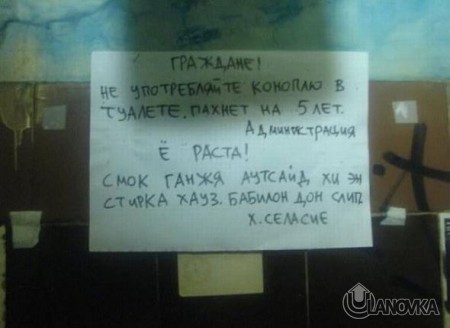 ГРАЖДАНЕ!
НЕ УПОТРЕБЛЯЙТЕ КОНОПЛЮ В
ТУАЛЕТЕ. ПАХНЕТ НА 5 ЛЕТ.
АДМИНИСТРАЦИЯ
Ё РАСТА!
СМОК ГАНЖЯ АУТСАЙД ХИ ЭН
СТИРКА ХАУЗ. БАБИЛОН ДОН СЛИП
Х. СЕЛАСИЕ
ULANOVKA